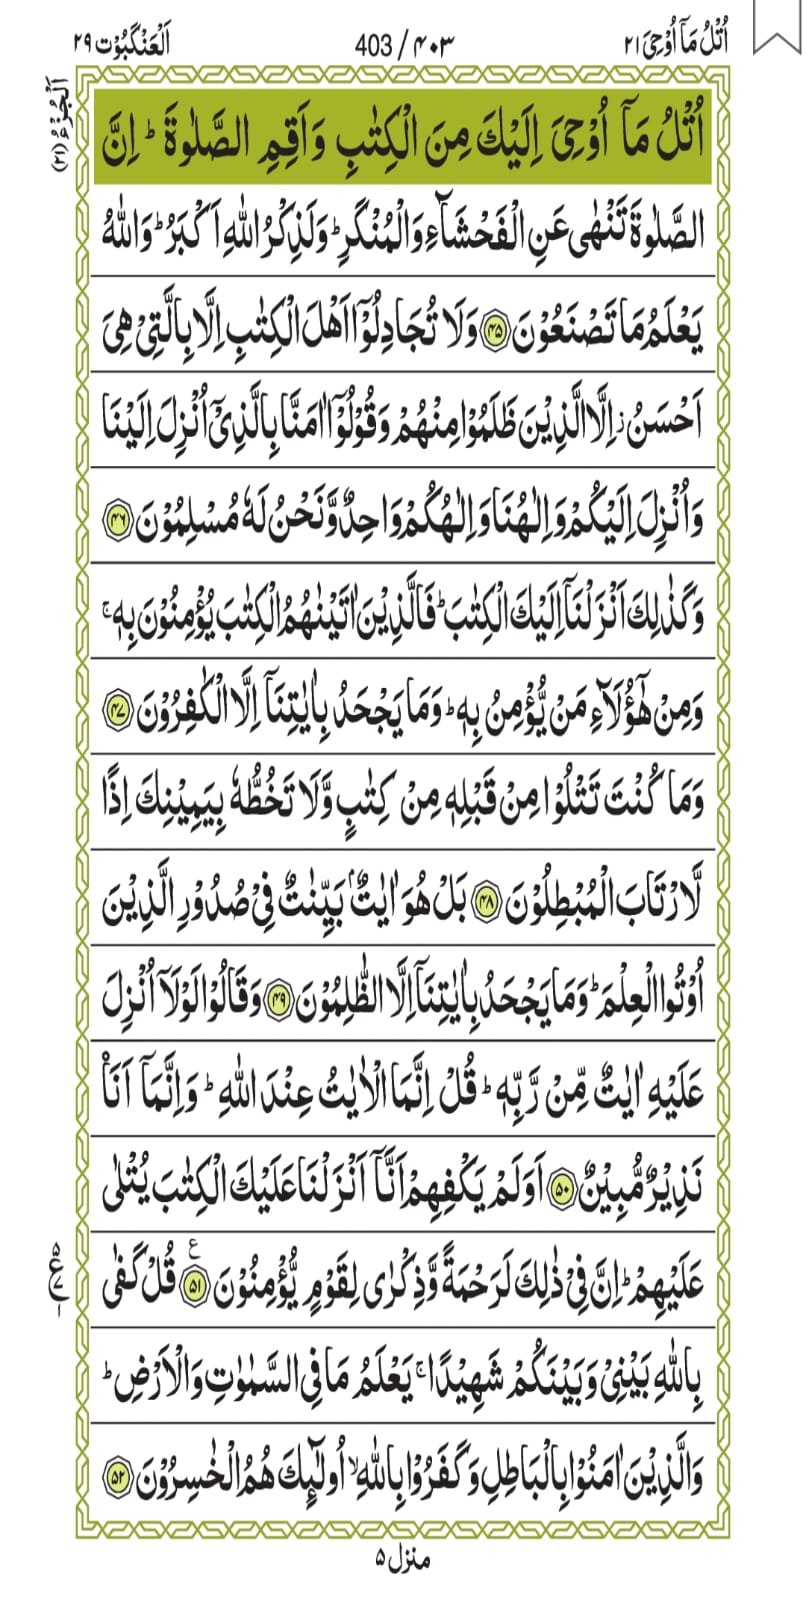 اُتْلُ مَاۤ اُوْحِیَ ٢١ 403 / ٤٠٣ اَلْعَنْكَبُوْت ٢٩
اَلْجُزْءُ (٢١)
اُتْلُ مَاۤ اُوْحِیَ اِلَیْكَ مِنَ الْكِتٰبِ وَاَقِمِ الصَّلٰوةَ ؕ اِنَّ
الصَّلٰوةَ تَنْهٰی عَنِ الْفَحْشَآءِ وَالْمُنْكَرِ ؕ وَلَذِكْرُ اللّٰهِ اَكْبَرُ ؕ وَاللّٰهُ
یَعْلَمُ مَا تَصْنَعُوْنَ ﴿۴۵﴾ وَلَا تُجَادِلُوْۤا اَهْلَ الْكِتٰبِ اِلَّا بِالَّتِیْ هِیَ
اَحْسَنُ ۖ اِلَّا الَّذِیْنَ ظَلَمُوْا مِنْهُمْ وَقُوْلُوْۤا اٰمَنَّا بِالَّذِیْۤ اُنْزِلَ اِلَیْنَا
وَاُنْزِلَ اِلَیْكُمْ وَاِلٰهُنَا وَاِلٰهُكُمْ وَاحِدٌ وَّنَحْنُ لَهٗ مُسْلِمُوْنَ ﴿۴۶﴾
وَكَذٰلِكَ اَنْزَلْنَاۤ اِلَیْكَ الْكِتٰبَ ؕ فَالَّذِیْنَ اٰتَیْنٰهُمُ الْكِتٰبَ یُؤْمِنُوْنَ بِهٖ ۚ
وَمِنْ هٰۤؤُلَآءِ مَنْ یُّؤْمِنُ بِهٖ ؕ وَمَا یَجْحَدُ بِاٰیٰتِنَاۤ اِلَّا الْكٰفِرُوْنَ ﴿۴۷﴾
وَمَا كُنْتَ تَتْلُوْا مِنْ قَبْلِهٖ مِنْ كِتٰبٍ وَّلَا تَخُطُّهٗ بِیَمِیْنِكَ اِذًا
لَّارْتَابَ الْمُبْطِلُوْنَ ﴿۴۸﴾ بَلْ هُوَ اٰیٰتٌۢ بَیِّنٰتٌ فِیْ صُدُوْرِ الَّذِیْنَ
اُوْتُوا الْعِلْمَ ؕ وَمَا یَجْحَدُ بِاٰیٰتِنَاۤ اِلَّا الظّٰلِمُوْنَ ﴿۴۹﴾ وَقَالُوْا لَوْلَاۤ اُنْزِلَ
عَلَیْهِ اٰیٰتٌ مِّنْ رَّبِّهٖ ؕ قُلْ اِنَّمَا الْاٰیٰتُ عِنْدَ اللّٰهِ ؕ وَاِنَّمَاۤ اَنَا
نَذِیْرٌ مُّبِیْنٌ ﴿۵۰﴾ اَوَلَمْ یَكْفِهِمْ اَنَّاۤ اَنْزَلْنَا عَلَیْكَ الْكِتٰبَ یُتْلٰی
عَلَیْهِمْ ؕ اِنَّ فِیْ ذٰلِكَ لَرَحْمَةً وَّذِكْرٰی لِقَوْمٍ یُّؤْمِنُوْنَ ﴿۵۱﴾ ع قُلْ كَفٰی
بِاللّٰهِ بَیْنِیْ وَبَیْنَكُمْ شَهِیْدًا ۚ یَعْلَمُ مَا فِی السَّمٰوٰتِ وَالْاَرْضِ ؕ
وَالَّذِیْنَ اٰمَنُوْا بِالْبَاطِلِ وَكَفَرُوْا بِاللّٰهِ ۙ اُولٰٓئِكَ هُمُ الْخٰسِرُوْنَ ﴿۵۲﴾
منزل ۵